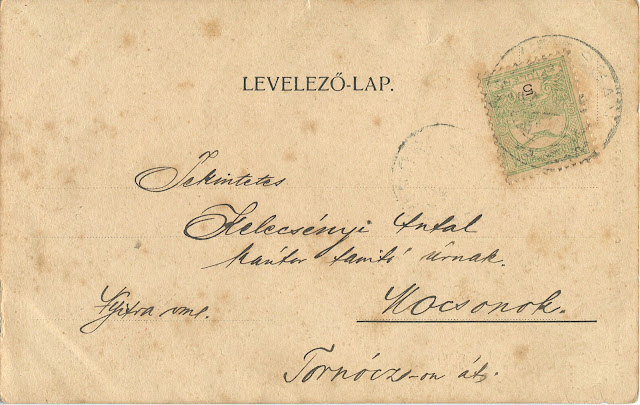 LEVELEZŐ-LAP.
5
Tekintetes
Kelecsényi Antal
kántor tanitó úrnak.
Nyitra vme.
Mocsonok.
Tornócz-on át.